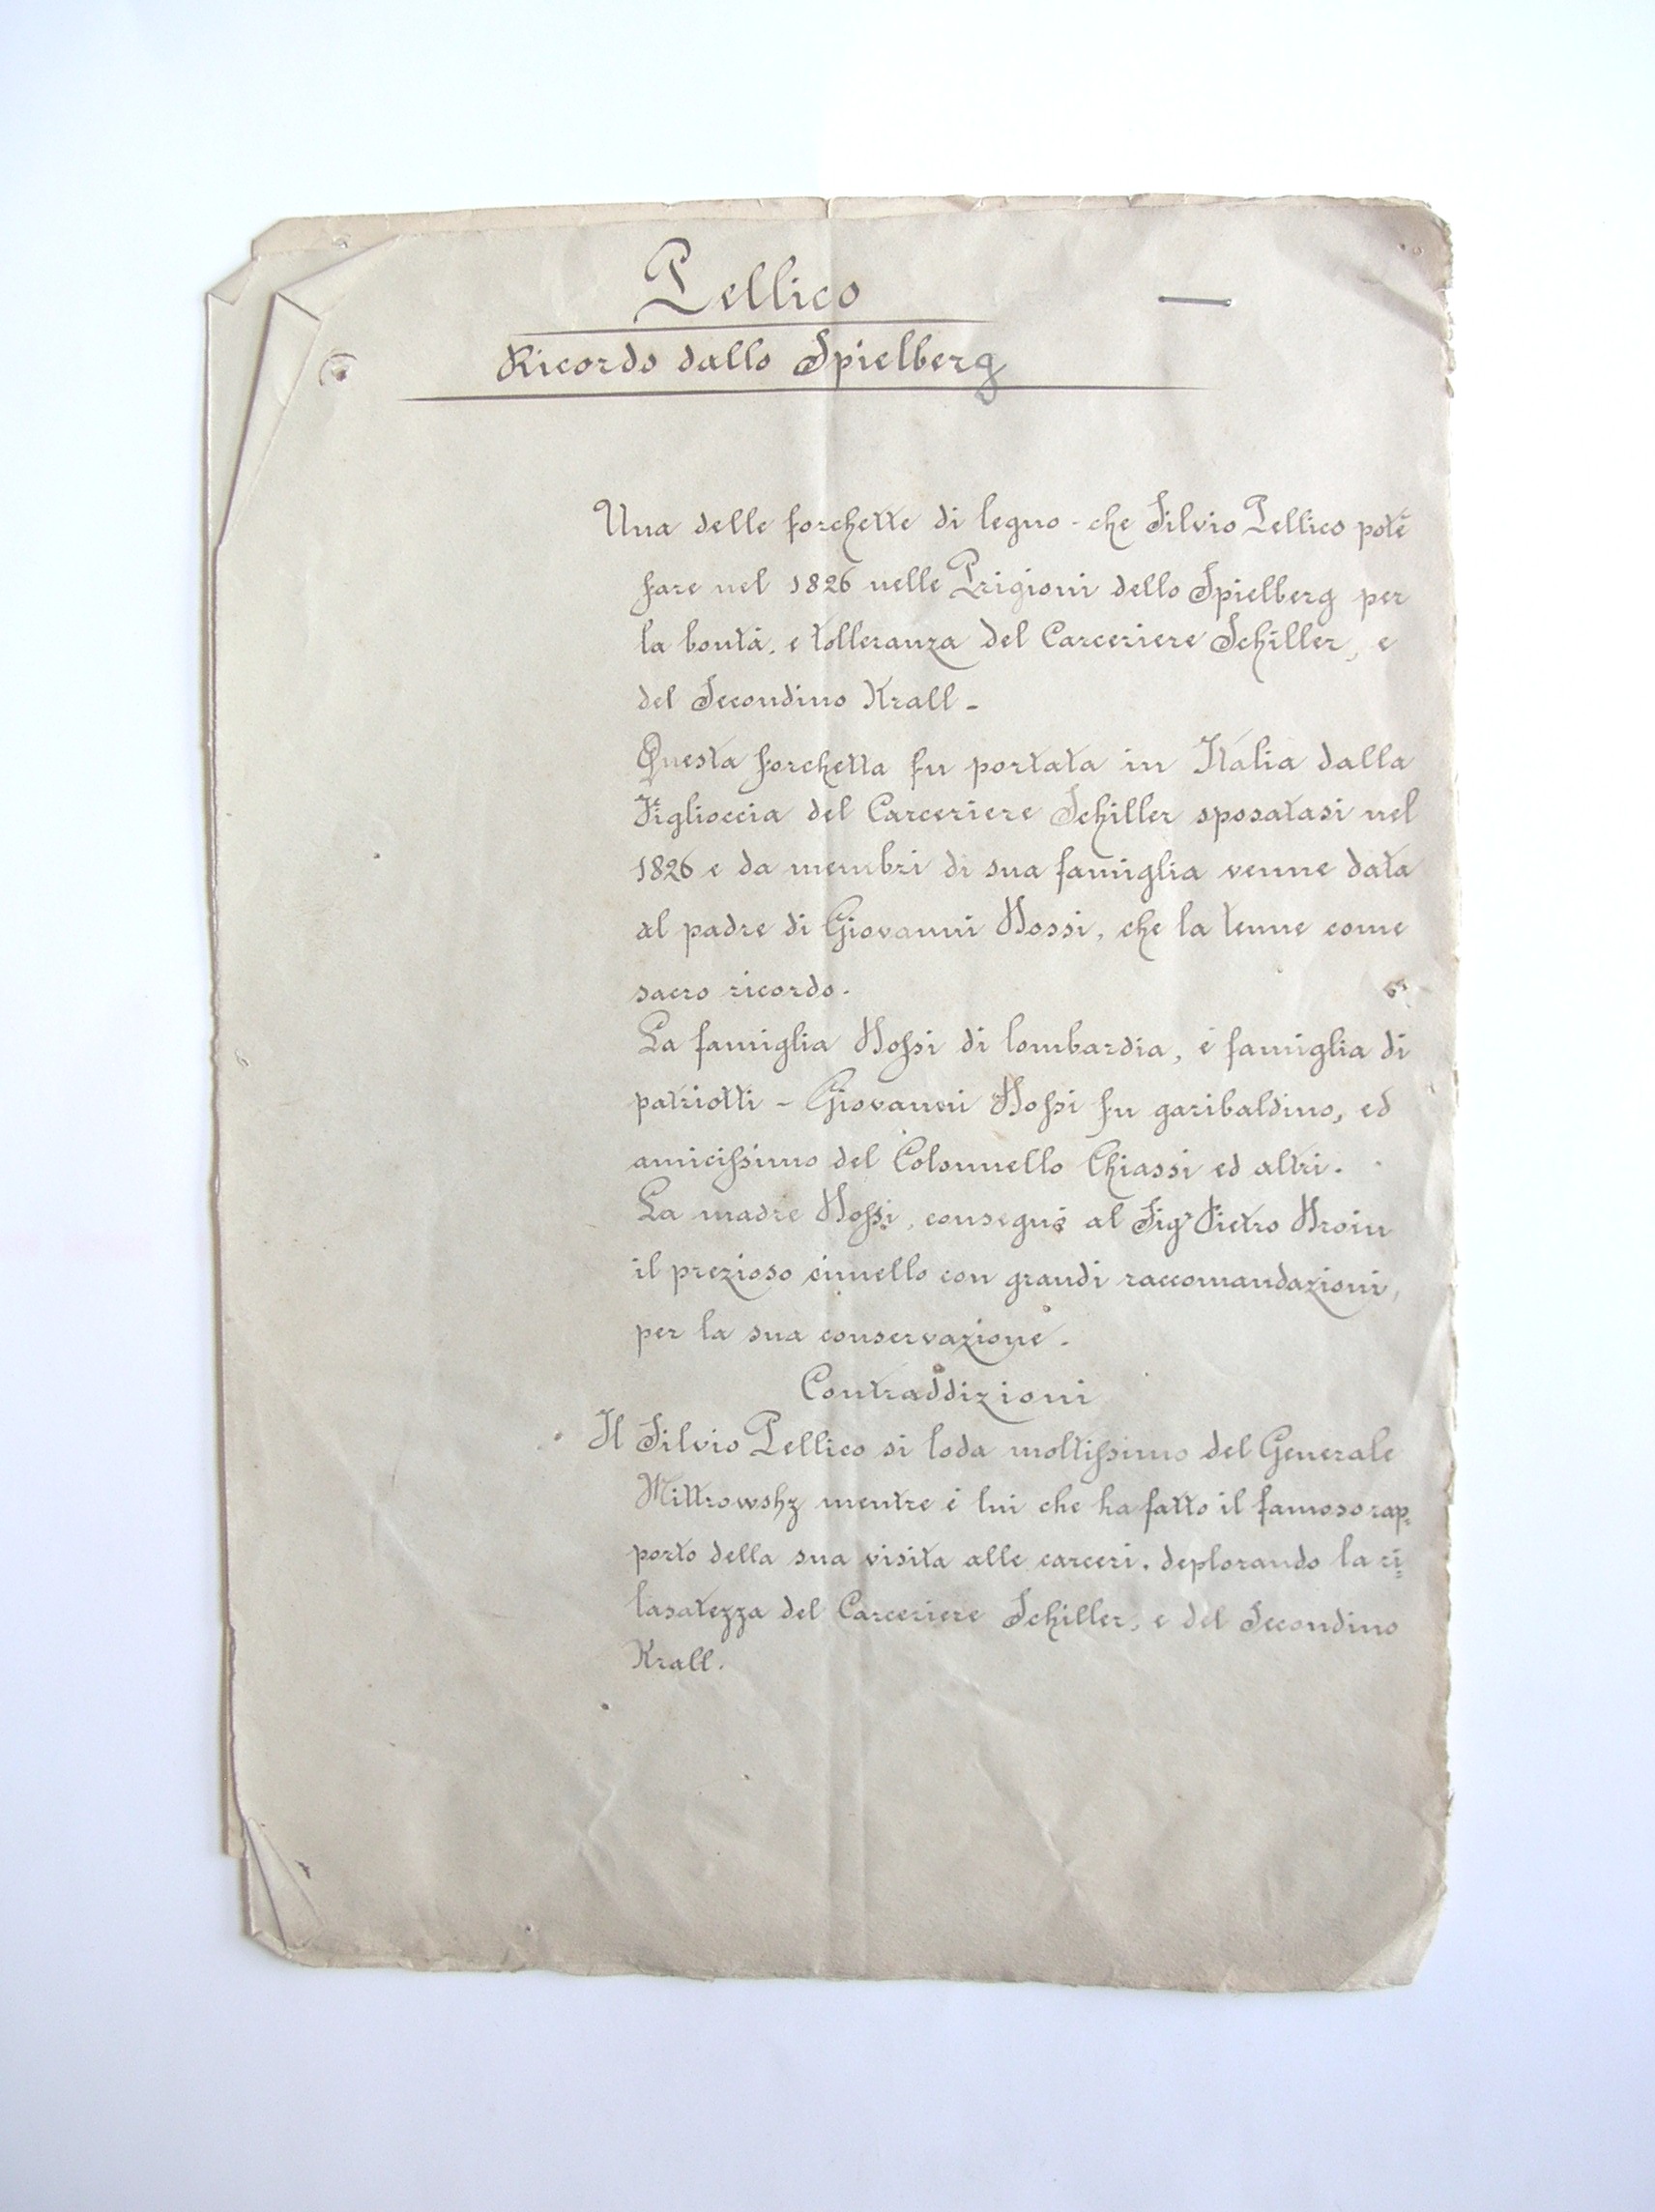 Pellico
Ricordo dallo Spielberg
Una delle forchette di legno - che Silvio Pellico potè
fare nel 1826 nelle Prigioni dello Spielberg per
la bontà, e tolleranza del Carceriere Schiller, e
del Secondino Krall -
Questa forchetta fu portata in Italia dalla
Figlioccia del Carceriere Schiller sposatasi nel
1826 e da membri di sua famiglia venne data
al padre di Giovanni Nossi, che la tenne come
sacro ricordo.
La famiglia Nossi di lombardia, é famiglia di
patriotti - Giovanni Nossi fu garibaldino, ed
amicissimo del Colonnello Chiassi ed altri.
La madre Nossi, consegnò al Sigr Pietro
il prezioso cimello con grandi raccomandazioni,
per la sua conservazione.
Contraddizioni
Il Silvio Pellico si loda moltissimo del Generale
Mittrowshz mentre é lui che ha fatto il famoso rap=
porto della sua visita alle carceri, deplorando la ri=
lasatezza del Carceriere Schiller, e del Secondino
Krall.